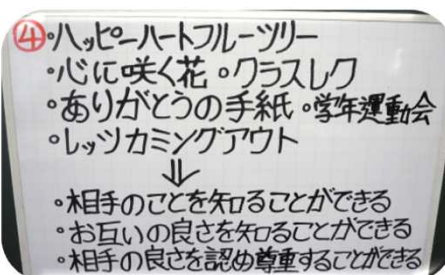 ④・ハッピーハートフルーツリー
・心に咲く花 ・クラスレク
・ありがとうの手紙 ・学年運動会
・レッツカミングアウト
⇓
・相手のことを知ることができる
・お互いの良さを知ることができる
・相手の良さを認め尊重することができる